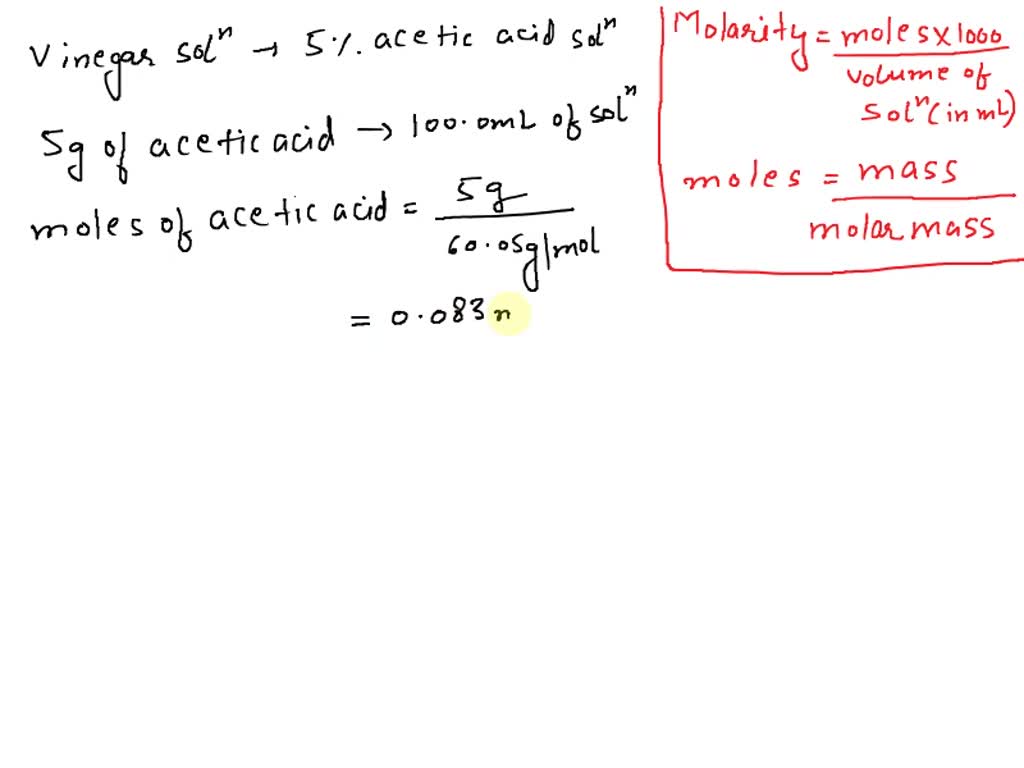 Vinegar solⁿ → 5% acetic acid solⁿ
5g of acetic acid → 100.0mL of solⁿ
moles of acetic acid = 5g / 60.05g/mol
= 0.083 m
Molarity = moles×1000 / volume of solⁿ (in mL)
moles = mass / molar mass